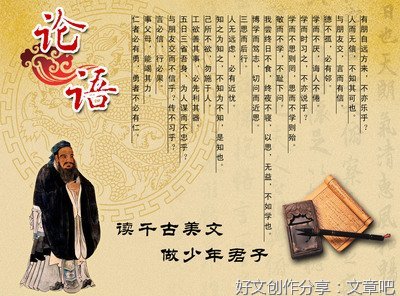 论语
有朋自远方来，不亦乐乎？
人而无信，不知其可也。
与朋友交，言而有信
德不孤，必有邻
学而不厌，诲人不倦。
学而时习之，不亦说乎？
学而不思则罔，思而不学则殆
敏而好学，不耻下问
我尝终日不食，终夜不寝，以思，无益，不如学也。
博学而笃志，切问而近思
三思而后行
人无远虑，必有近忧
知之为知之，不知为不知，是知也。
己所不欲，勿施于人
工欲善其事，必先利其器
吾日三省吾身，为人谋而不忠乎？
与朋友交而不信乎？传不习乎？
言必信，行必果
事父母，能竭其力
仁者必有勇，勇者不必有仁。
读千古美文
做少年君子
好文创作分享：文章吧